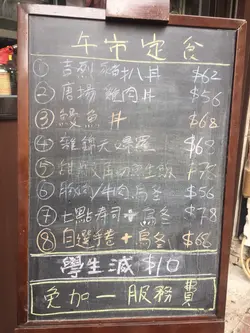 午市定食
① 吉列豬扒丼 $62
② 唐揚雞肉丼 $56
③ 鰻魚丼 $68
④ 雜錦天 $68
⑤
⑥ 牛肉烏冬 $56
⑦ 七點壽司+烏冬 $78
⑧ 自選手卷+烏冬 $68
學生減 $10
免加一服務費